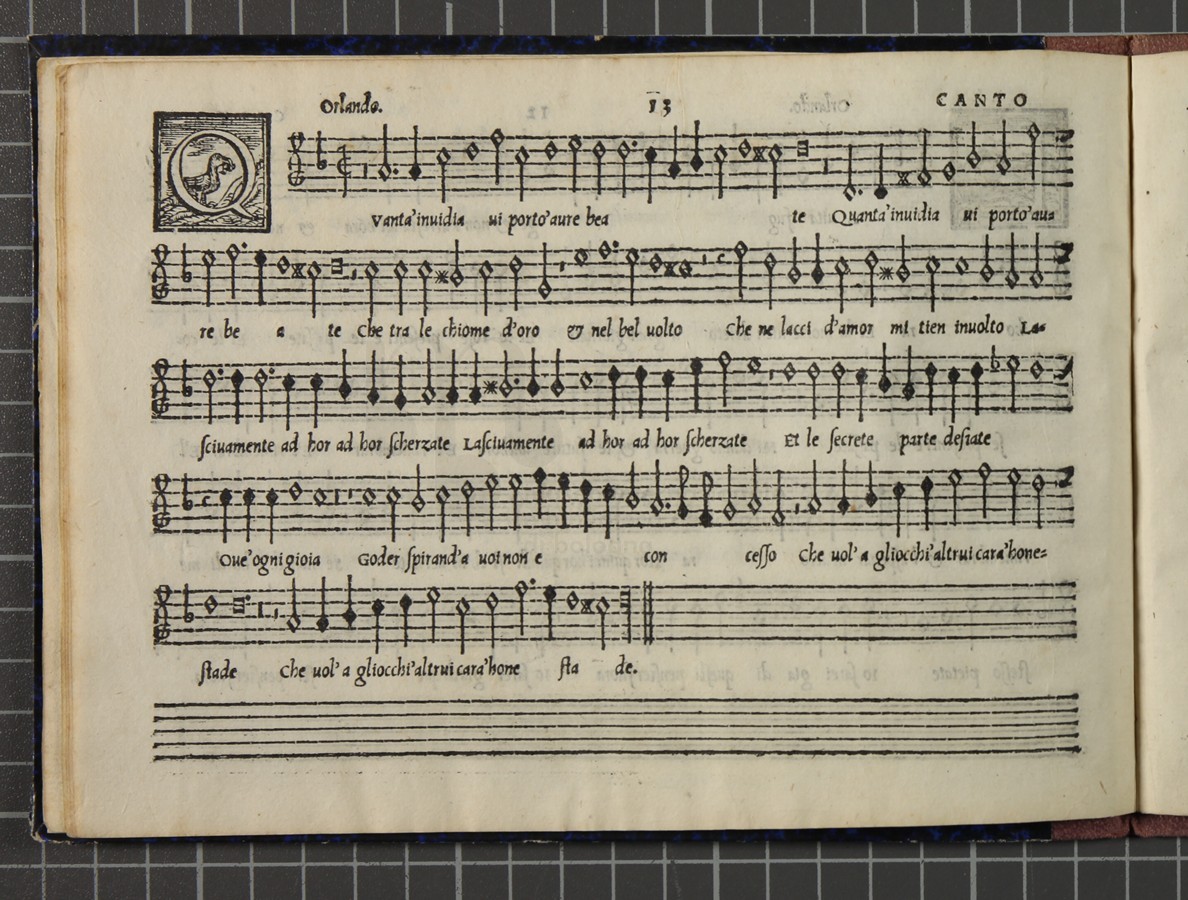 Orlando. 13 CANTO
QVanta'inuidia ui porto'aure bea te Quanta'inuidia ui porto'au=
re be a te Che tra le chiome d'oro & nel bel uolto Che ne lacci d'amor mi tien inuolto La=
sciuamente ad hor ad hor scherzate Lasciuamente ad hor ad hor scherzate Et le secrete parte desiate
Oue'ogni gioia Goder spirand'a uoi non e con cesso Che uol' a gliocchi'altrui cara'hone=
stade Che uol' a gliocchi'altrui cara'hone sta de.